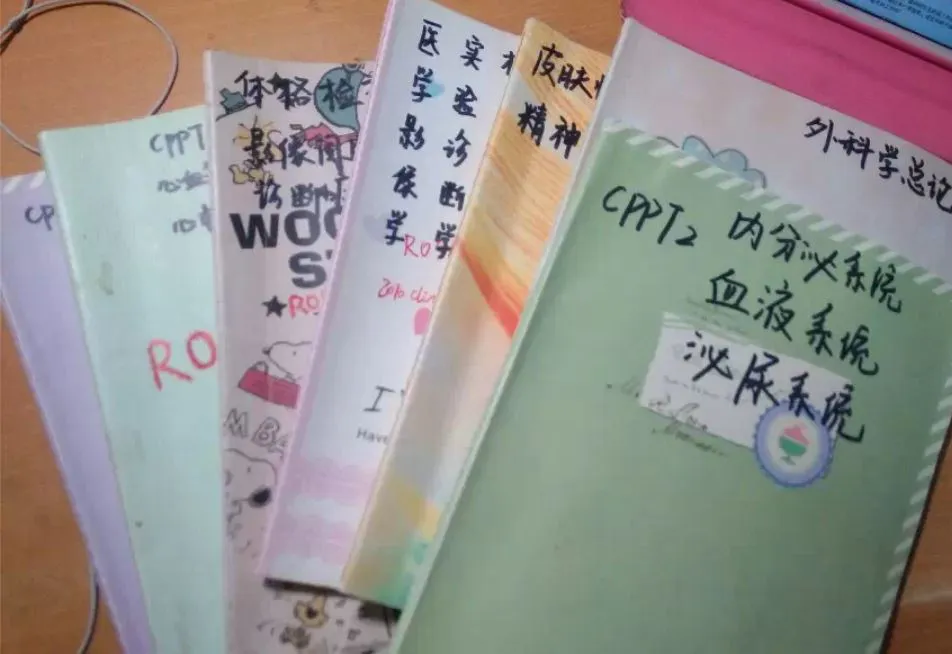 CPPT
RO
体格检
影像
诊断
WOO
ST
RO
医学影像学
实验诊断学
RO
I
Have
皮肤
精神
外科学总论
CPPT2 内分泌系统
血液系统
泌尿系统